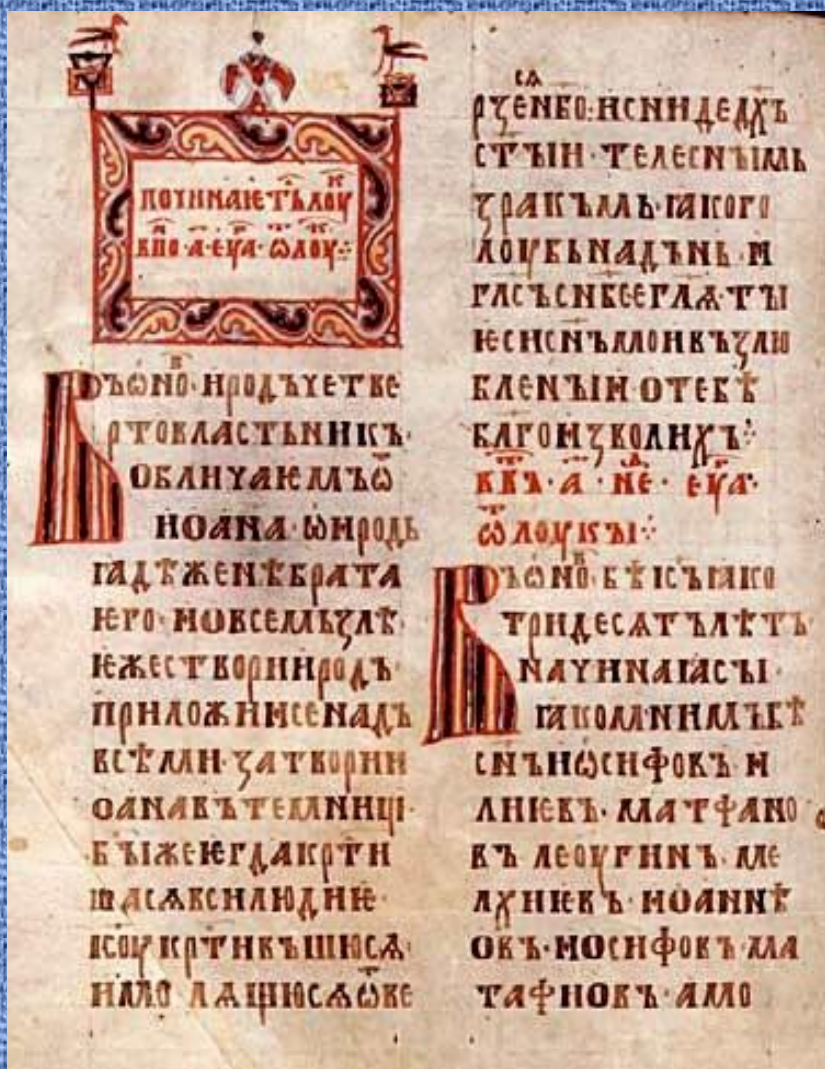 ПОЧИНАЮТЬ ЛОУК
ВПО · А · ЕУА · ѾЛОУ ⁘
ВЪѠНО · ИРОДЪЧЕТВЕ
РТОВЛАСТЬНИКЪ ·
ОБЛИЧАЮМЪѾ
ИОАНА · ѠИРОДЬ
ꙖДѢЖЕНѢБРАТА
ѤГО · ИОВСЕМЬЗЛѢ ·
ѤЖЕСТВОРИИРОДЪ ·
ПРИЛОЖИИСЕНАДЪ
ВСѢМИ · ЗАТВОРИИ
ОАНАВЪТЕМЬНИЦИ ·
БЫЖЕѤГДАКРТИ
ШАСѦВСИЛЮДИѤ ·
ІСОУКРТИВЪШЮСѦ ·
ИМОЛѦЩЮСѦѾВЕ
РЗЕНБО · ИСНИДЕДХЪ
СТЫИ · ТЕЛЕСНЫМЬ
ЗРАКЪМЬ · ꙖКОГО
ЛОУБЬНАДЪНЬ · И
ГЛСЪСНБСЕГЛѦ · ТЫ
ѤСИСНЪМОИВЪЗЛЮ
БЛЕНЫИ · ОТЕБѢ
БЛГОИЗВОЛИХЪ ⁘
· А · НЕ · ЕУА ·
ѾЛОУКЫ ⁘
ВЪѠНО · БѢІСЪꙖКО
ТРИДЕСѦТЪЛѢТЪ ·
НАЧИНАꙖСЫ ·
ꙖКОМЬНИМЪБѢ
СНЪИѠСИФОВЪ · И
ЛИѤВЪ · МАТФАНО
ВЪ ЛЕОУГИНЪ · МЕ
ЛХИѤВЪ · ИОАННѢ
ОВЪ · ИОСИФОВЪ · МА
ТАФИОВЪ · АМО